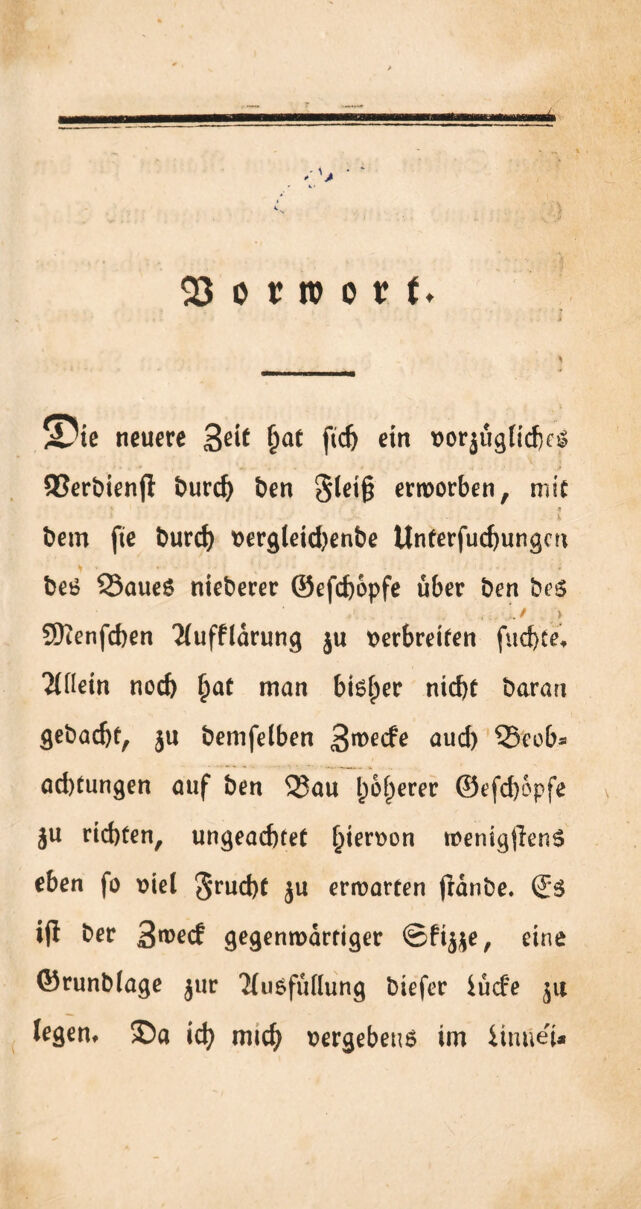 Vorwort.
Die neuere Zeit hat sich ein vorzügliches
Verdienst durch den Fleiß erworben, mit
dem sie durch vergleichende Untersuchungen
des Baues niederer Geschöpfe über den des
Menschen Aufklärung zu verbreiten suchte.
Allein noch hat man bisher nicht daran
gedacht, zu demselben Zwecke auch Beob-
achtungen auf den Bau höherer Geschöpfe
zu richten, ungeachtet hiervon wenigstens
eben so viel Frucht zu erwarten stände. Es
ist der Zweck gegenwärtiger Skizze, eine
Grundlage zur Ausfüllung dieser Lücke zu
legen. Da ich mich vergebens im Linnéi-